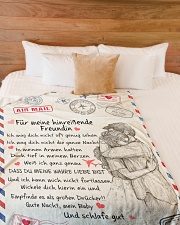 AIR MAIL
Für meine hinreißende
Freundin
Ich mag dich nicht oft genug sehen
Ich mag dich nicht die ganze Nacht
In meinen Armen halten
Doch tief in meinem Herzen
Weiß ich ganz genau
DASS DU MEINE WAHRE LIEBE BIST
Und ich kann mich nicht fortlassen.
Wickele dich hierin ein und
Empfinde es als großen Drücker!!
Gute Nacht, mein Baby
Und schlafe gut